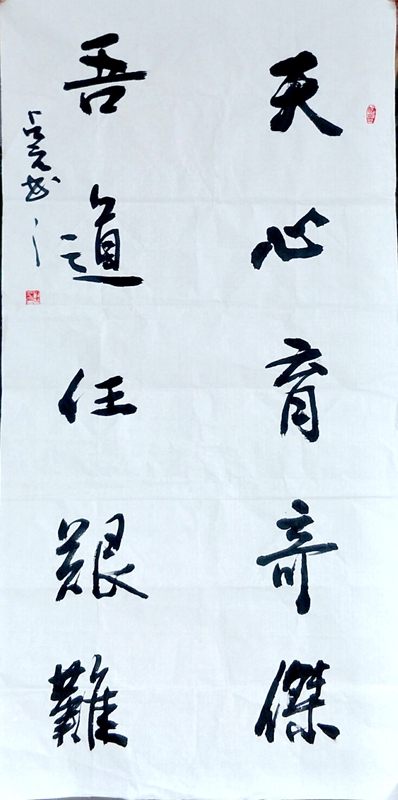 天心育奇傑
吾道任艱難